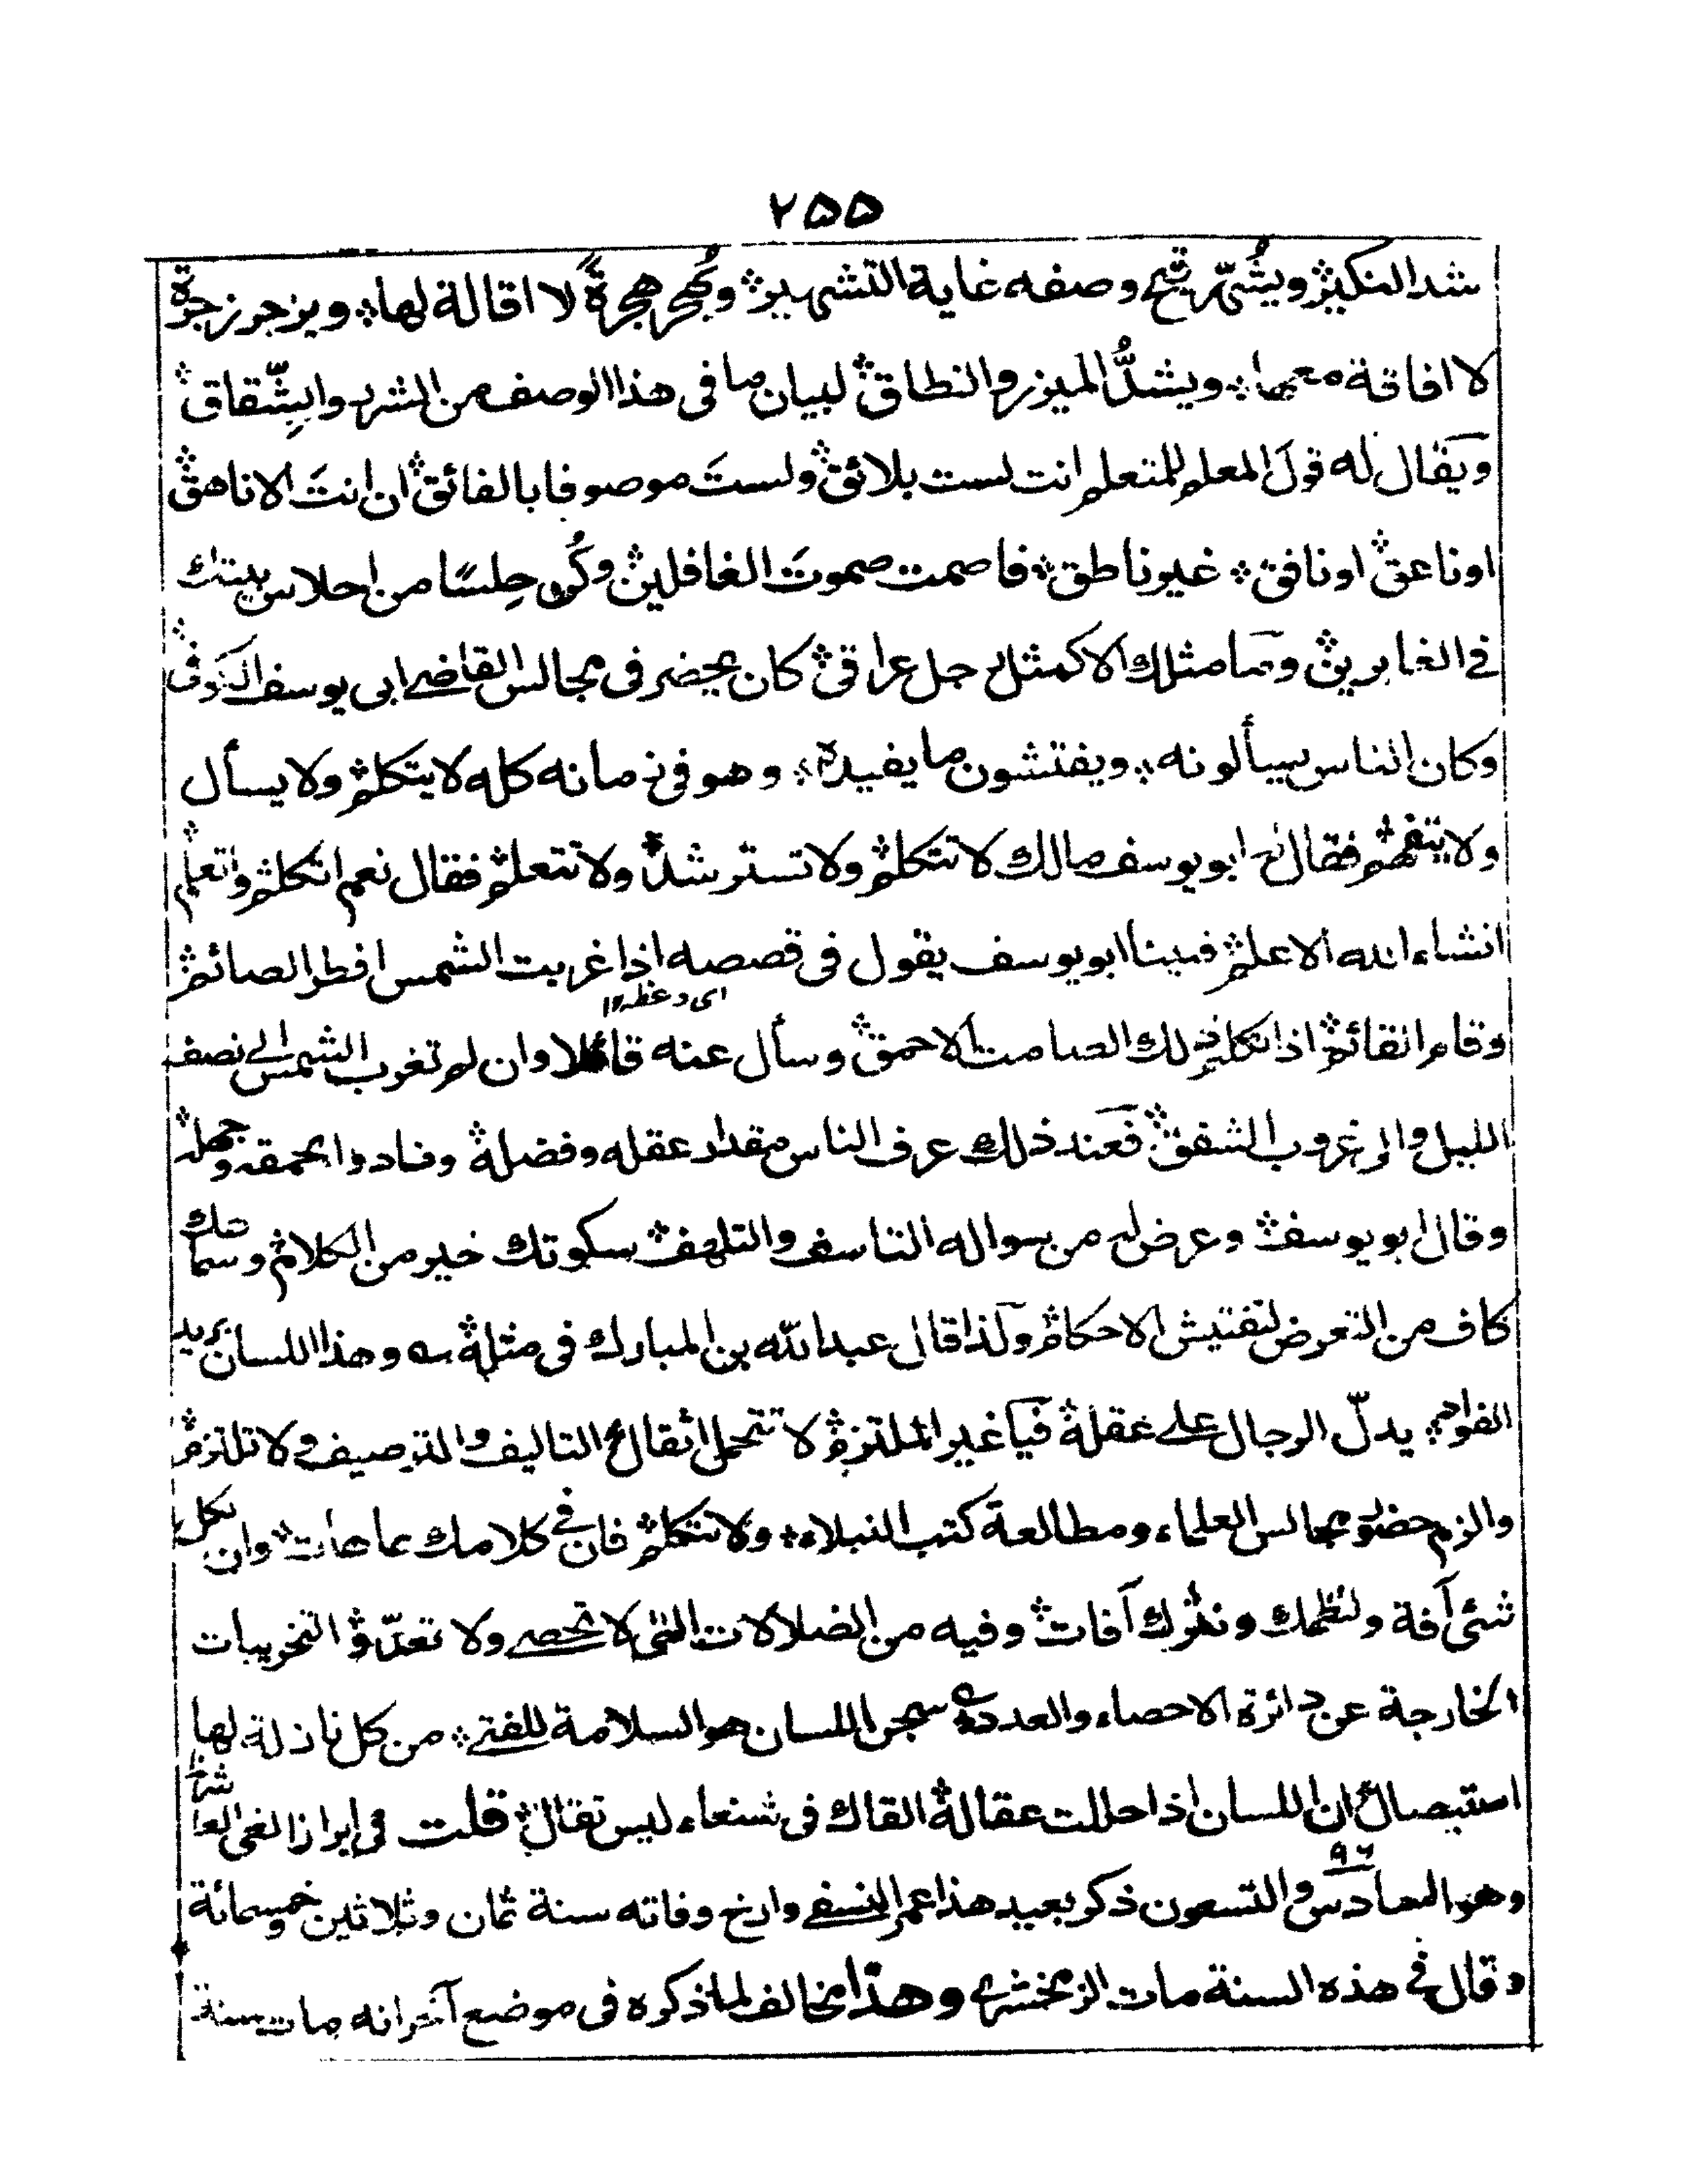 ٢٥٥
شد النكير ويُشهّر قبح وصفه غاية التشهير ويُهجر هجرةً لا اقالة لها ويزجر زجرة
لا افاقة معها ويشدُّ الميزر والنطاق لبيان ما فى هذا الوصف من الشر والشِّقاق
ويقال له قولَ المعلم للمتعلم انت لست بلائق ولستَ موصوفا بالفائق ان انتَ الا ناهق
او ناعق او نافق غير ناطق فاصمت صموتَ الغافلين وكُن حِلسًا من احلاس بيتك
فى الغابرين وما مثلك الا كمثل رجل عراقى كان يحضر فى مجالس القاضے ابى يوسف الكوفى
وكان الناس يسألونه ويفتشون ما يفيده وهو فى زمانه كله لا يتكلم ولا يسأل
ولا يتفهم فقال له ابو يوسف مالك لا تتكلم ولا تسترشد ولا تتعلم فقال نعم اتكلم واتعلم
انشاء الله الاعلم فبينا ابو يوسف يقول فى قصصه اذا غربت الشمس افطر الصائم
اى وعظه ١٢
وقام القائم اذا تكلم ذلك الصامت الاحمق وسأل عنه قائلا وان لم تغرب الشمس الى نصف
الليل والى غروب الشفق فعند ذلك عرف الناس مقدار عقله وفضله ونادوا بحمقه وجهله
وقال ابو يوسف وعرض له من سواله التاسف والتلهف سكوتك خير من الكلام وسماعك
كاف من التعرض لتفتيش الاحكام ولذا قال عبد الله بن المبارك فى مثله ؎ وهذا اللسان بريد
الفواد يدلّ الرجال على عقله فيا غير الملتزم لا تتحمل اثقال التاليف والترصيف ولا تلتزم
والزم حضور مجالس العلماء ومطالعة كتب النبلاء ولا تتكلم فان فى كلامك عاهات وان لكل
شئ آفة ولنظمك ونثرك آفات وفيه من الضلالات التى لا تحصے ولا تعدّ والتخريبات
الخارجة عن دائرة الاحصاء والعدد ؎ سجن اللسان هو السلامة للفتے من كل نازلة لها
استيصال ان اللسان اذا حللت عقاله القاك فى شنعاء ليس تقال قلت فى ابراز الغى العاشر
٩٦
وهو السادس والتسعون ذكر بعيد هذا عمر النسفے وارخ وفاته سنة ثمان وثلاثين وخمسمائة
وقال فى هذه السنة مات الزمخشرى وهذا مخالف لما ذكره فى موضع آخر انه مات سنة